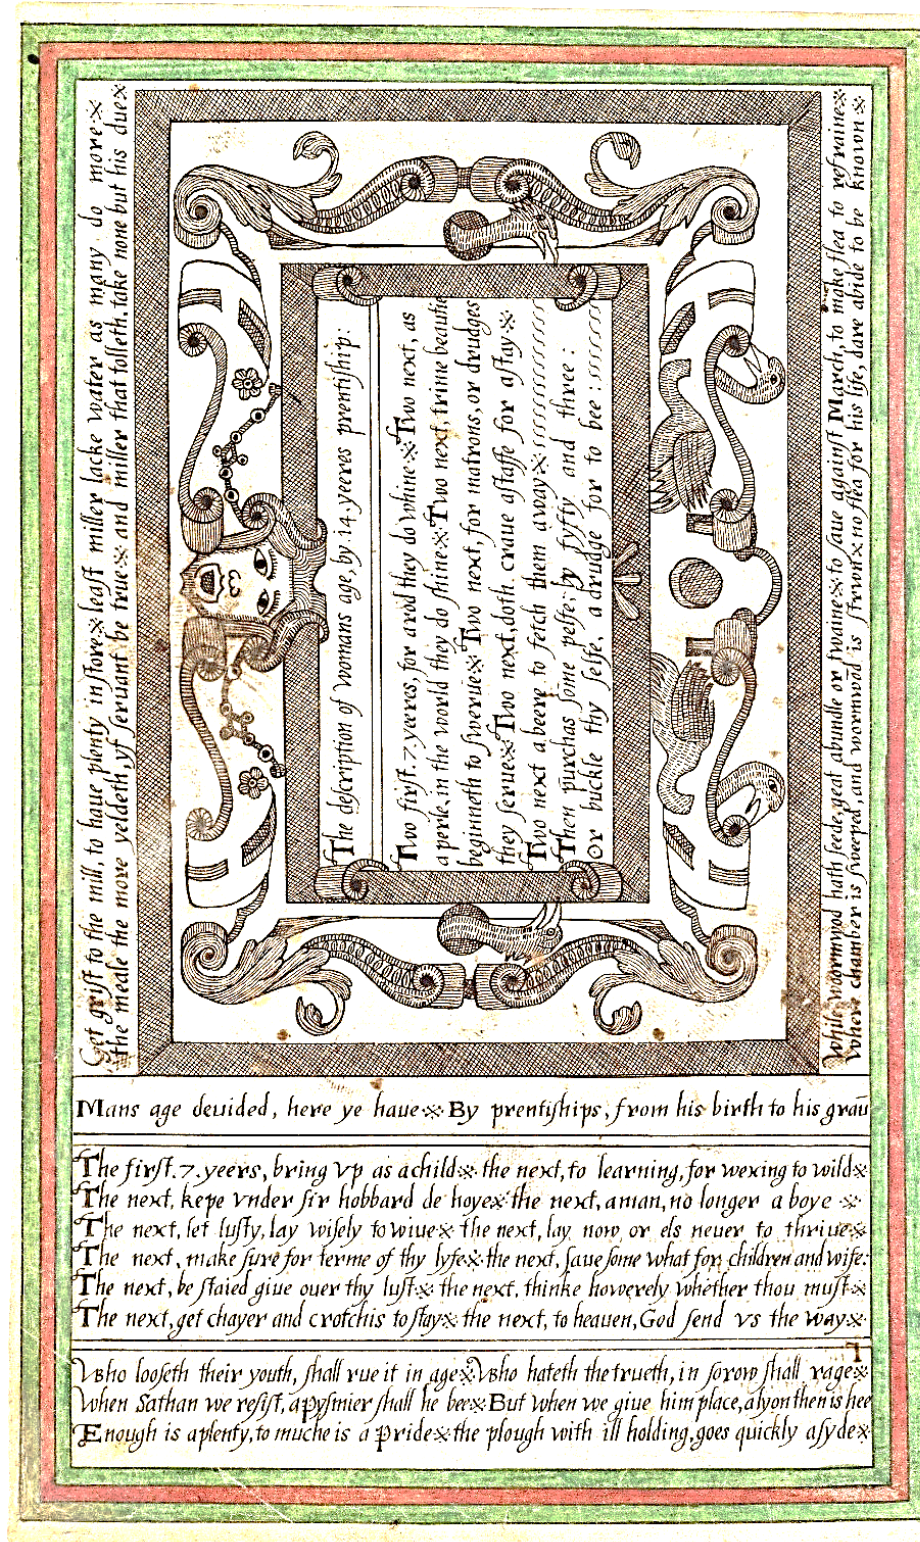 Get grist to the mill, to haue plenty in store ※ least miller lacke water as many do more ※
the meale the more yeldeth, yf seruant be true ※ and miller that tolleth, take none but his due ※
The description of womans age, by .14. yeeres prentiship:
Two first .7. yeeres, for a rod they do whine ※ Two next, as
a perle, in the world they do shine ※ Two next, trime beautie
beginneth to swerue ※ Two next, for matrons, or drudges
they serue ※ Two next, doth craue a staffe for a stay ※
Two next a beere to fetch them away ※
Then purchas some pelfe, by fyfty and three :
Or buckle thy selfe, a drudge for to bee :
While woormwod hath seede, geat a bundle or twaine ※ to saue against March, to make flea to refraine ※
Where chamber is sweeped, and wormwōd is strown ※ no flea for his life, dare abide to be known ※
Mans age deuided, here ye haue ※ By prentiships, from his birth to his graū
The first .7. yeers, bring vp as a child ※ the next, to learning, for wexing to wild ※
The next, kepe vnder sir hobbard de hoye ※ the next, a man, no longer a boye ※
The next, let lusty, lay wisely to wiue ※ the next, lay now or els neuer to thriue ※
The next, make sure for terme of thy lyfe ※ the next, saue some what for children and wife:
The next, be staied giue ouer thy lust ※ the next, thinke howerely whether thou must ※
The next, get chayer and crotchis to stay ※ the next, to heauen, God send vs the way ※
Who looseth their youth, shall rue it in age ※ Who hateth the trueth, in sorow shall rage ※
When Sathan we resist, a pysmier shall he bee ※ But when we giue him place, a lyon then is hee
Enough is a plenty, to muche is a pride ※ the plough with ill holding, goes quickly asyde ※